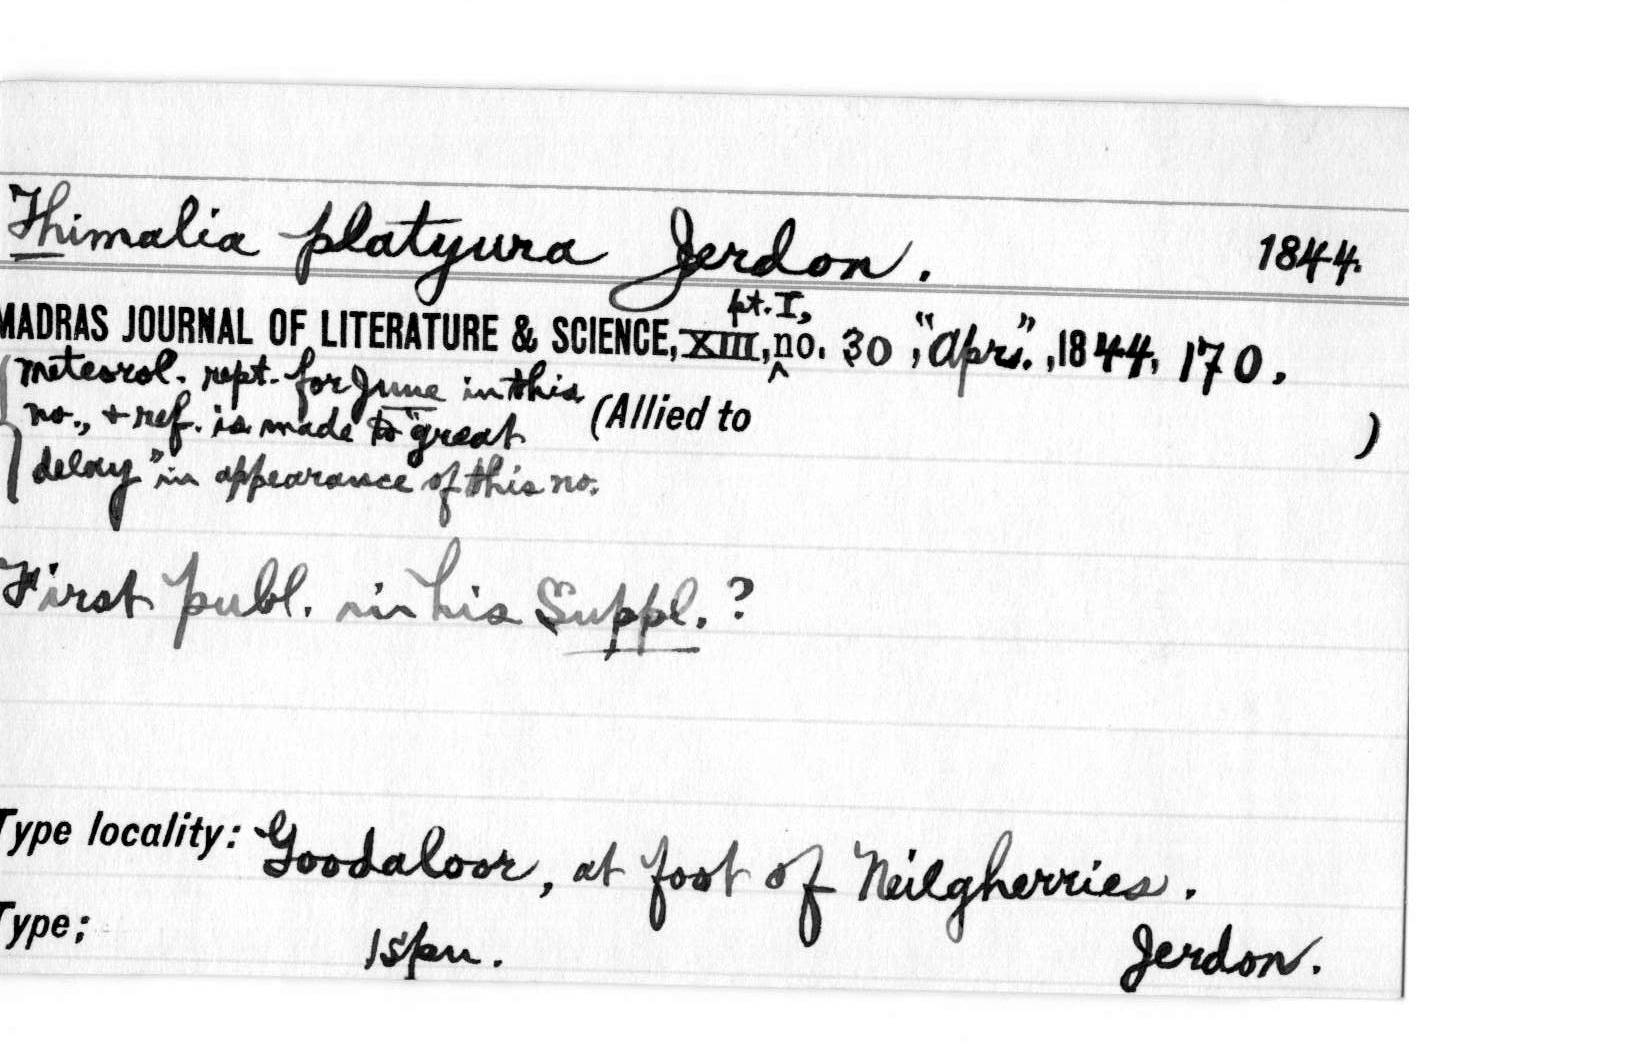 Thimalia platyura Jerdon. 1844.
MADRAS JOURNAL OF LITERATURE & SCIENCE, XIII, pt. I, no. 30, "Apr.", 1844, 170.
(Allied to )
meteorol. rept. for June in this
no., + ref. is made to "great
delay" in appearance of this no.
First publ. in his Suppl.?
Type locality: Goodaloor, at foot of Neilgherries.
Type: 1 spn. Jerdon.